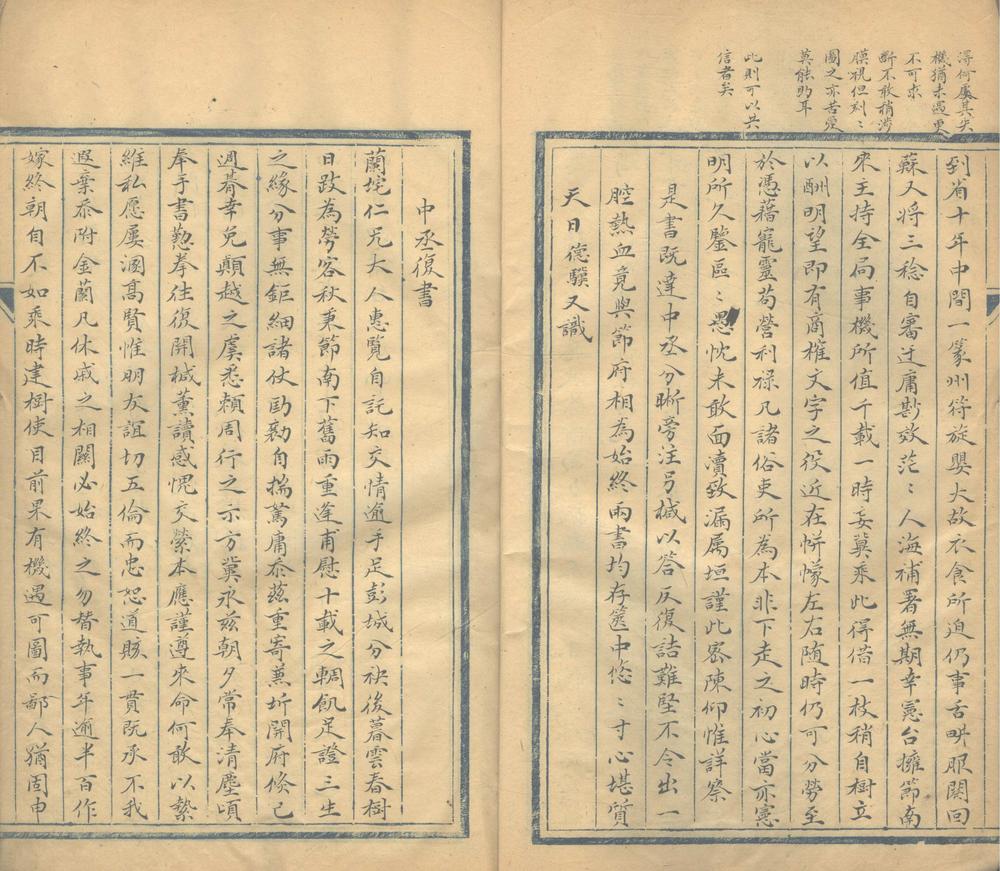 得何屡其失
機猶未遇更
不可求
斷不敢稍涉
膜視但刻〻
圖之亦苦愛
莫能助耳
此則可以共
信者矣
到省十年中間一篆州符旋嬰大故衣食所迫仍事舌畊服闋回
蘇又將三稔自審迂庸尠效茫〻人海補署無期幸憲台擁節南
來主持全局事機所值千載一時妄冀乘此得借一枝稍自樹立
以酬明望即有商榷文字之役近在帡幪左右随時仍可分勞至
於憑藉寵靈苟營利祿凡諸俗吏所為本非下走之初心當亦憲
明所久鑒區〻愚忱未敢面瀆致漏属垣謹此密陳仰惟詳察
是書既達中丞分晰旁注另椷以答反復詰難堅不令出一
腔熱血竟與節府相為始終兩書均存篋中悠〻寸心堪質
天日德驥又識
中丞復書
蘭垞仁兄大人惠覧自託知交情逾手足彭城分袂後暮雲春樹
日跂為勞客秋秉節南下舊雨重逢甫慰十載之輖飢足證三生
之緣分事無鉅細諸仗勖勷自揣駑庸忝兹重寄蕪圻開府倏已
週朞幸免顛越之虞悉頼周行之示方冀永兹朝夕常奉清塵頃
奉手書懃拳往復開椷薰讀感愧交縈本應謹遵來命何敢以縶
維私愿屡溷高賢惟明友誼切五倫而忠恕道賅一貫既承不我
遐棄忝附金蘭凡休戚之相關必始終之勿替執事年逾半百作
嫁終朝自不如乘時建樹使目前果有機遇可圖而鄙人猶固申